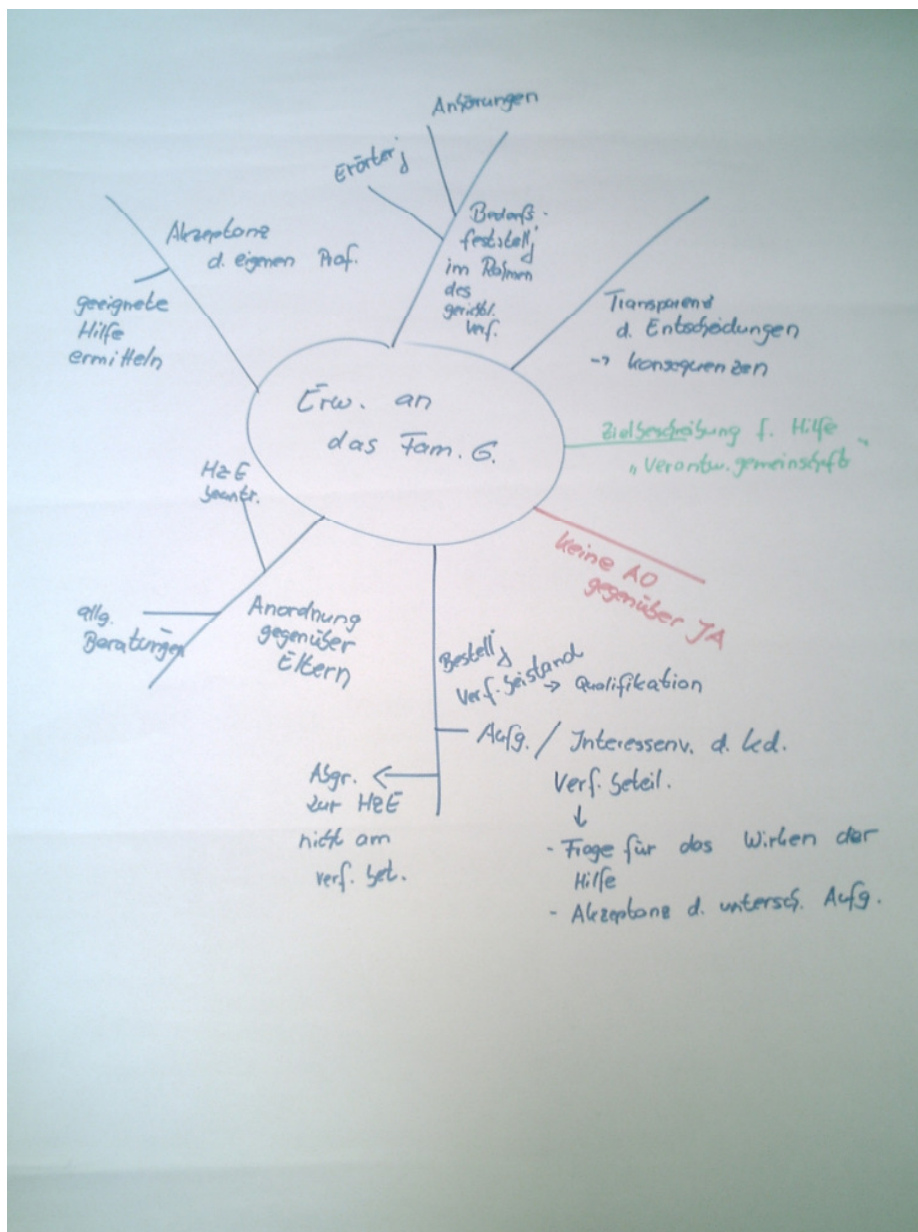 Anhörungen
Erörterg
Bedarfs-
feststellg
im Rahmen
des
gerichtl.
Verf.
Akzeptanz
d. eigenen Prof.
geeignete
Hilfe
ermitteln
Transparenz
d. Entscheidungen
→ Konsequenzen
Erw. an
das Fam. G.
Zielbeschreibung f. Hilfe
"Verantw.gemeinschaft"
keine AO
gegenüber JA
HzE
beantr.
allg.
Beratungen
Anordnung
gegenüber
Eltern
Bestellg
Verf.beistand
→ Qualifikation
Aufg. / Interessenv. d. Kd.
Verf. beteil.
↓
- Frage für das Wirken der
Hilfe
- Akzeptanz d. untersch. Aufg.
Abgr.
zur HzE
nicht am
verf. bet.